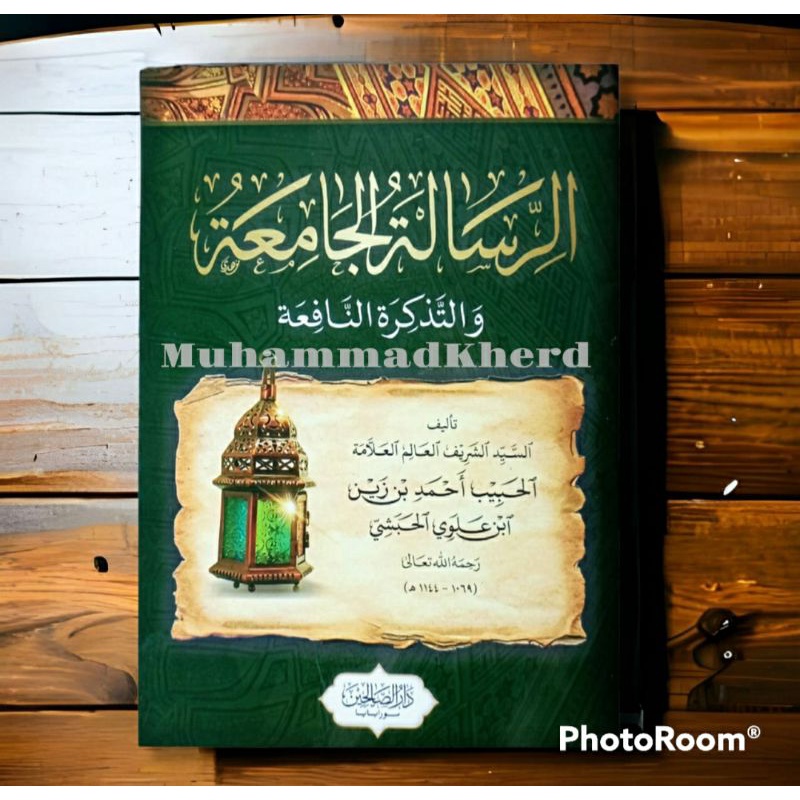 الرِّسَالَةُ الْجَامِعَةُ
وَالتَّذْكِرَةُ النَّافِعَة
MuhammadKherd
تأليف
السَّيِّد الشَّرِيفْ العَالِم العَلَّامَة
الحَبِيْب أَحْمَد بْن زَيْن
ابْن عَلَوِي الحَبَشِيّ
رَحِمَهُ الله تَعَالَى
(١٠٦٩ - ١١٤٤ هـ)
دَارُ الصَّالِحِيْن
سورابايا
PhotoRoom®